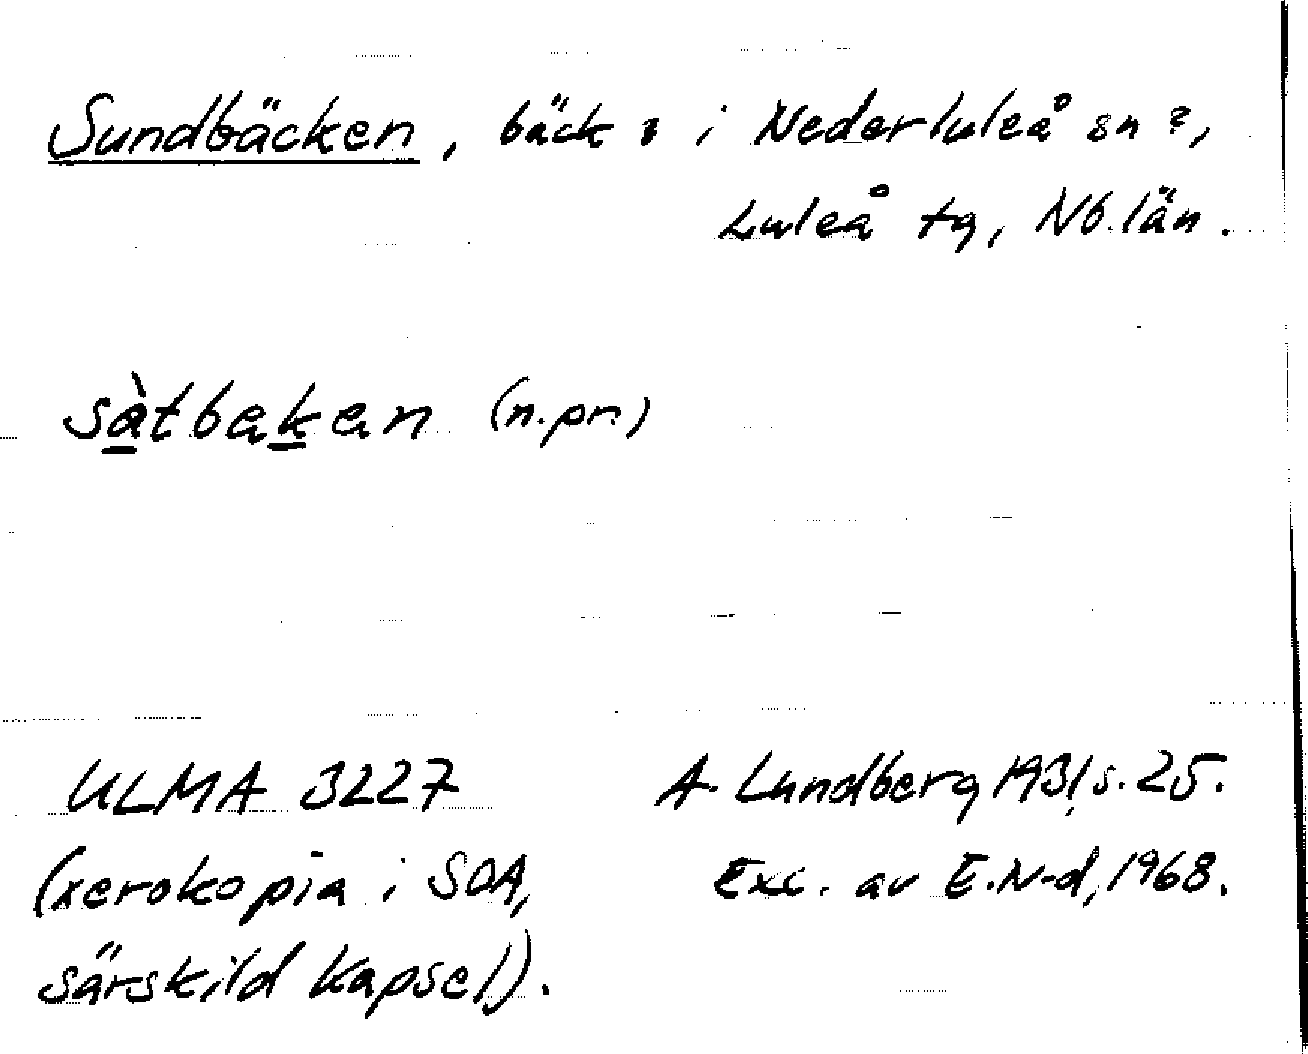 Sundbäcken, bäck i Nederluleå sn?,
Luleå tg, Nb. län.
sàtbaken (n.pr.)
ULMA 3227
(xerokopia i SOA,
särskild kapsel).
A. Lundberg 1931, s. 25.
Exc. av E.N-d, 1968.